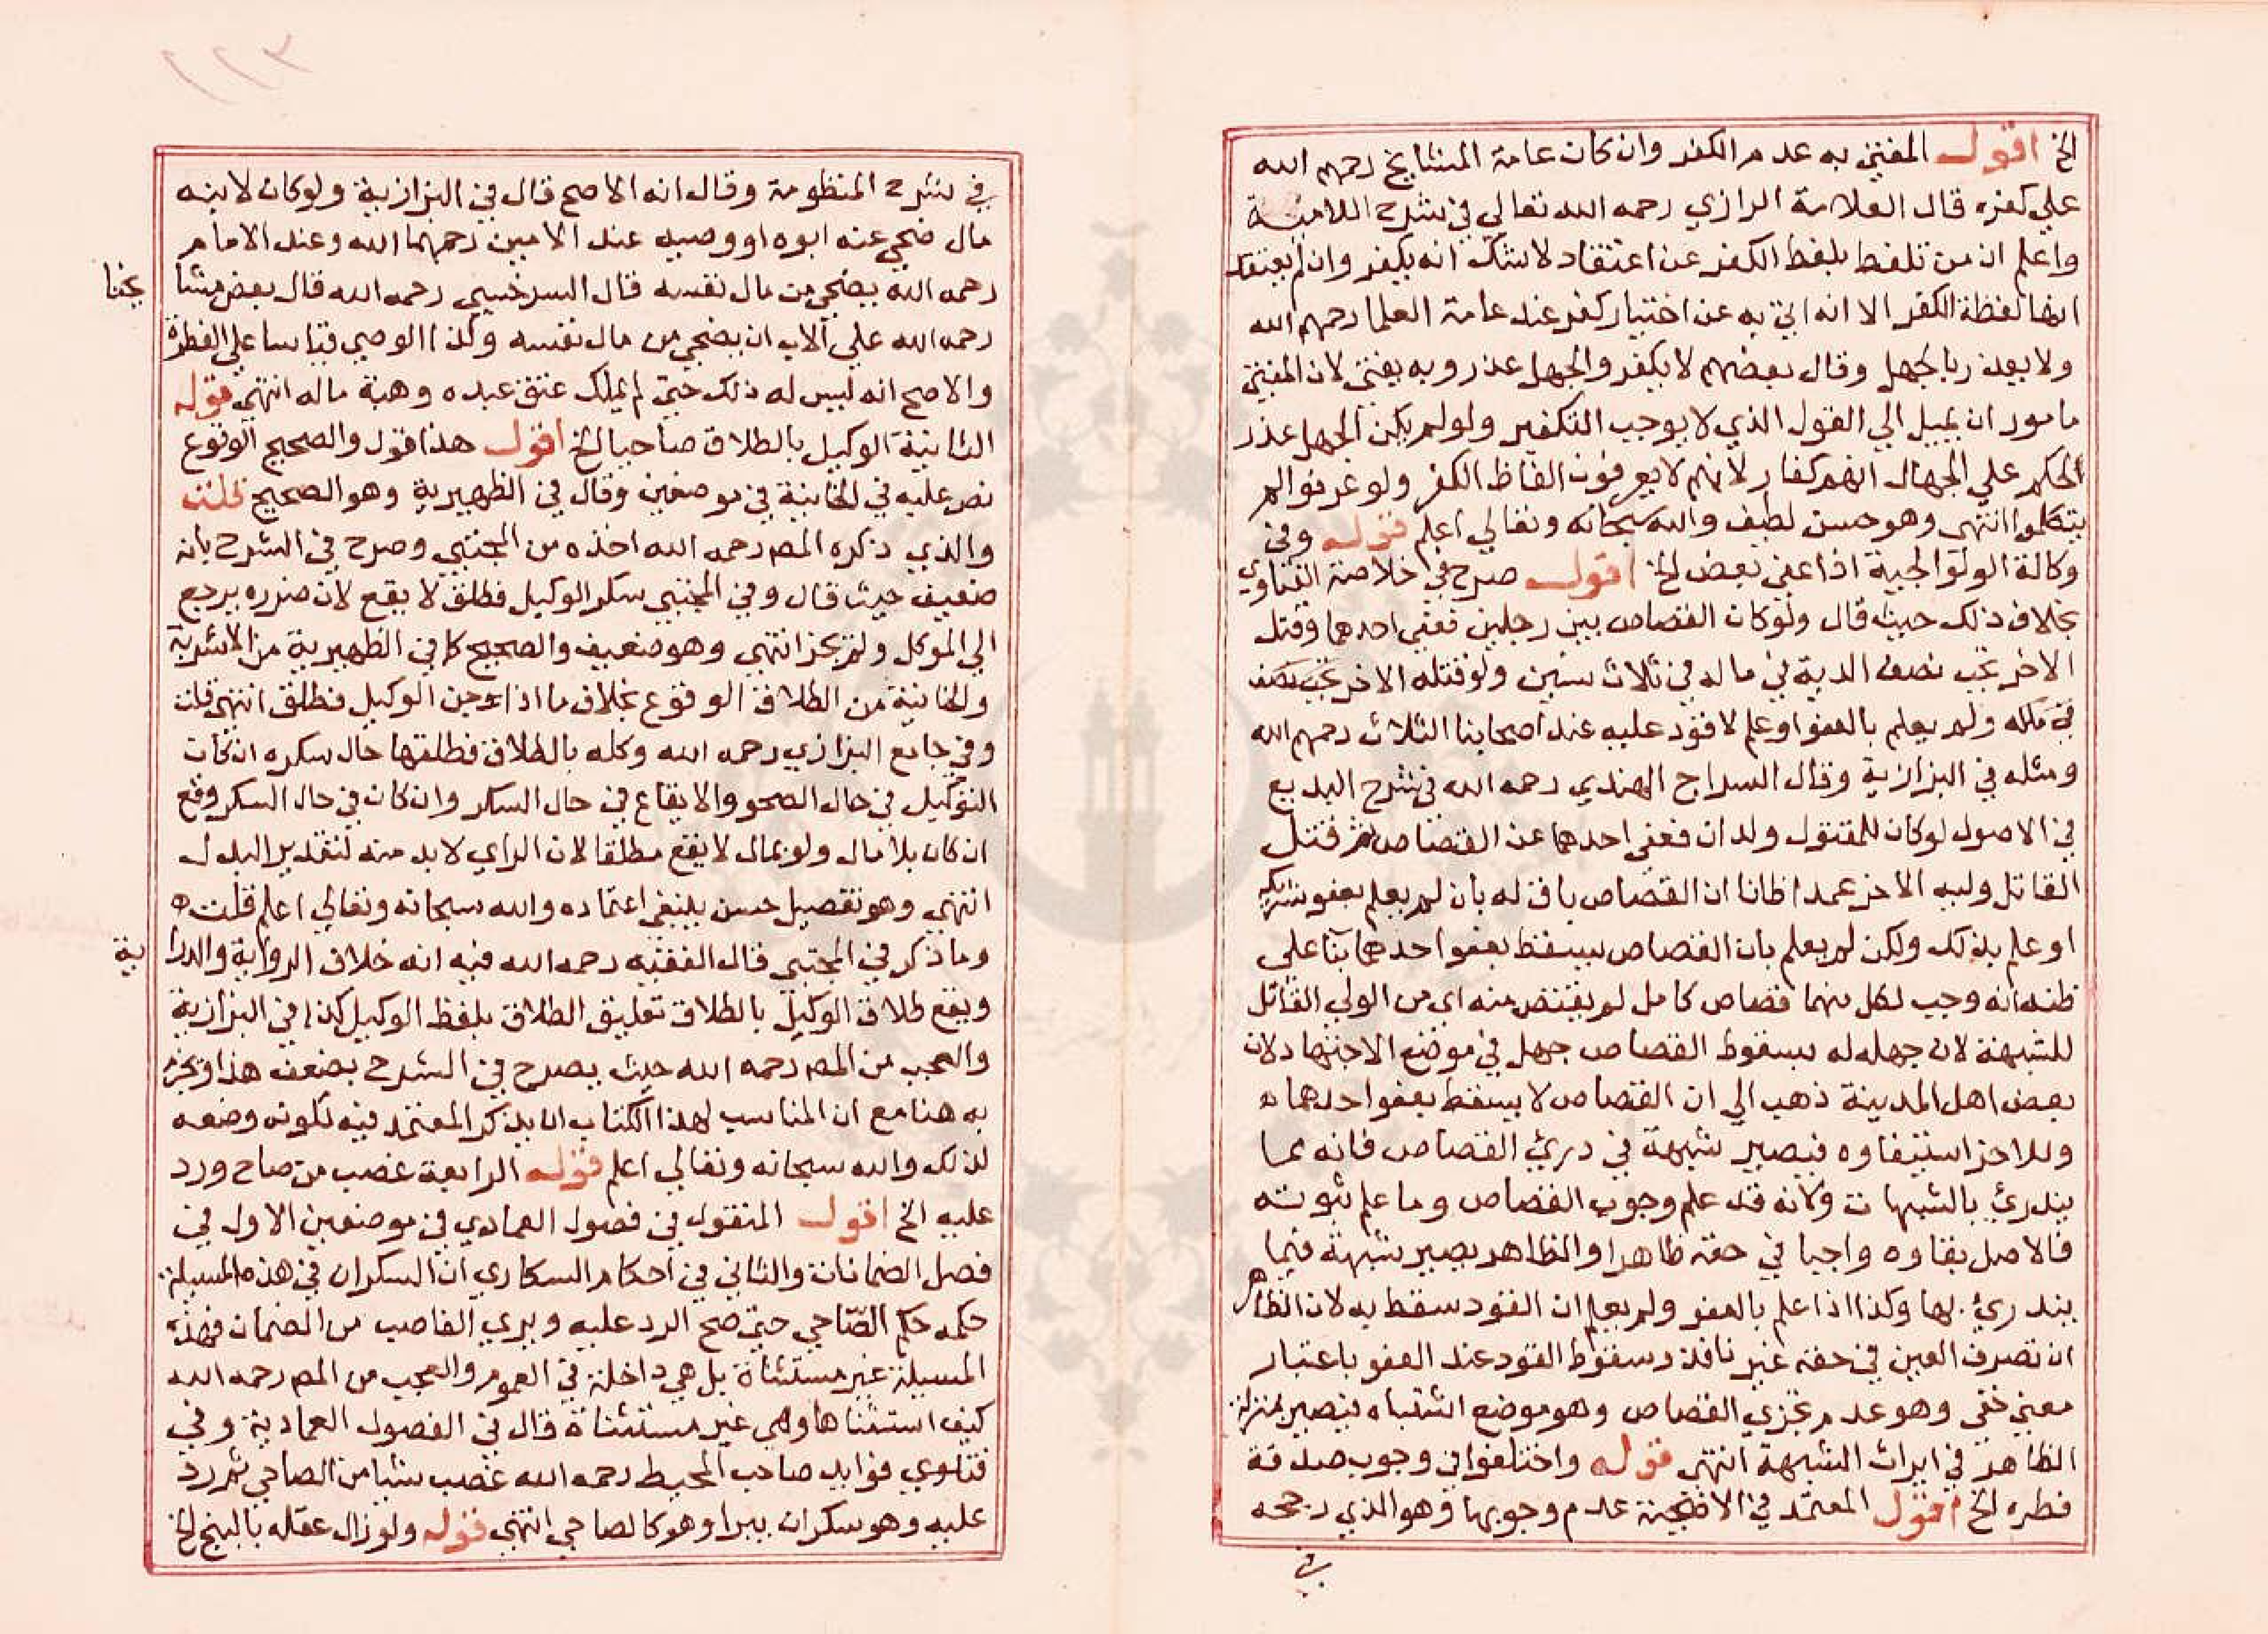 الخ اقول المفتي به عدم الكفر وان كان عامة المشايخ رحمهم الله
علي كفره قال العلامة الرازي رحمه الله تعالي في شرح اللامية
واعلم ان من تلفظ بلفظ الكفر عن اعتقاد لاشك انه يكفر وان لم يعتقد
انها لفظة الكفر الا انه اتي به عن اختيار كفر عند عامة العلما رحمهم الله
ولا يعذر بالجهل وقال بعضهم لا يكفر والجهل عذر وبه يفتي لان المفتي
مامور ان يميل الي القول الذي لا يوجب التكفير ولو لم يكن الجهل عذر
الحكم علي الجهال انهم كفار لانهم لا يعرفون الفاظ الكفر ولو عرفوا لم
يتكلموا انتهي وهو حسن لطيف والله سبحانه وتعالي اعلم قوله وفي
وكالة الولوالجية اذا عفي بعض الخ اقول صرح في خلاصة الفتاوي
بخلاف ذلك حيث قال ولو كان القصاص بين رجلين فعفي احدهما وقتل
الاخر يجب نصف الدية في ماله في ثلاث سنين ولو قتله الاخر يجب نصف
في ماله ولم يعلم بالعفو او علم لا قود عليه عند اصحابنا الثلاث رحمهم الله
ومثله في البزازية وقال السراج الهندي رحمه الله في شرح البديع
في الاصول لو كان للمقتول ولدان فعفي احدهما عن القصاص ثم قتل
القاتل وليه الاخر عمدا ظانا ان القصاص باق له بان لم يعلم بعفو شريكه
او علم بذلك ولكن لم يعلم بان القصاص يسقط بعفو احدهما بنا علي
ظنه انه وجب لكل منهما قصاص كامل لم يقتص منه اي من الولي القاتل
للشبهة لان جهله له بسقوط القصاص جهل في موضع الاجتهاد لان
بعض اهل المدينة ذهب الي ان القصاص لا يسقط بعفو احدهما
وللاخر استيفاوه فيصير شبهة في دريء القصاص فانه مما
يندريء بالشبهات ولانه قد علم وجوب القصاص وما علم ثبوته
فالاصل بقاوه واجبا في حقه ظاهرا والظاهر يصير شبهة فيما
يندريء بها وكذا اذا علم بالعفو ولم يعلم ان القود سقط به لان الظاهر
ان تصرف الغير في حقه غير نافذ وسقوط القود عند العفو باعتبار
معني خفي وهو عدم تجزي القصاص وهو موضع اشتباه فيصير بمنزلة
الظاهر في ايراث الشبهة انتهي قوله واختلفوا في وجوب صدقة
فطره الخ اقول المعتمد في الاضحية عدم وجوبها وهو الذي رجحه
في
في شرح المنظومة وقال انه الاصح قال في البزازية ولو كان لابنه
مال ضحي عنه ابوه او وصيه عند الامين رحمهما الله وعند الامام
رحمه الله يضحي من مال نفسه قال السرخسي رحمه الله قال بعض مشايخنا
رحمه الله علي الاب ان يضحي من مال نفسه وكذا الوصي قياسا علي الفطرة
والاصح انه ليس له ذلك حيث لم يملك عتق عبده وهبة ماله انتهي قوله
الثانية الوكيل بالطلاق صاحيا الخ اقول هذا قول والصحيح الوقوع
نص عليه في الخانية في موضعين وقال في الظهيرية وهو الصحيح قلت
والذي ذكره المص رحمه الله اخذه من المجتبي وصرح في الشرح بانه
ضعيف حيث قال وفي المجتبي سكر الوكيل فطلق لا يقع لان ضرره يرجع
الي الموكل ولم يجز انتهي وهو ضعيف والصحيح كما في الظهيرية من الاشربة
والخانية من الطلاق الوقوع بخلاف ما اذا جن الوكيل فطلق انتهي قلت
وفي جامع البزازي رحمه الله وكله بالطلاق فطلقها حال سكره ان كان
التوكيل في حال الصحو والايقاع في حال السكر وان كان في حال السكر وقع
ان كان بلا مال ولو بمال لا يقع مطلقا لان الراي لا بد منه لتقدير البدل
انتهي وهو تفصيل حسن ينبغي اعتماده والله سبحانه وتعالي اعلم قلت
وما ذكر في المجتبي قال الفقيه رحمه الله فيه انه خلاف الرواية والدراية
ويقع طلاق الوكيل بالطلاق تعليق الطلاق بلفظ الوكيل كذا في البزازية
والعجب من المص رحمه الله حيث يصرح في الشرح بضعف هذا ويجزم
به هنا مع ان المناسب لهذا الكتاب ان يذكر المعتمد فيه لكونه وضعه
لذلك والله سبحانه وتعالي اعلم قوله الرابعة غصب من صاح ورد
عليه الخ اقول المنقول في فصول العمادي في موضعين الاول في
فصل الضمانات والثاني في احكام السكاري ان السكران في هذه المسيلة
حكمه حكم الصاحي حتي صح الرد عليه ويبري الغاصب من الضمان فهذه
المسيلة غير مستثناة بل هي داخلة في العموم والعجب من المص رحمه الله
كيف استثناها وهي غير مستثناة قال في الفصول العمادية وفي
فتاوي فوايد صاحب المحيط رحمه الله غصب شيا من الصاحي ثم رد
عليه وهو سكران يبرا وهو كالصاحي انتهي قوله ولو زال عقله بالبنج الخ